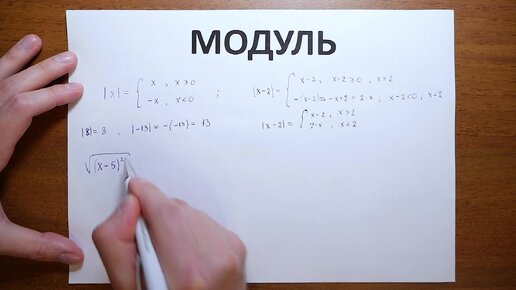 МОДУЛЬ
|x| = { x, x ≥ 0 ; |x-2| = { x-2, x-2 ≥ 0, x ≥ 2
-x, x < 0 -(x-2) = -x+2 = 2-x, x-2 < 0, x < 2
|3| = 3 ; |-13| = -(-13) = 13 |x-2| = { x-2, x ≥ 2
2-x, x < 2
√(x-5)²